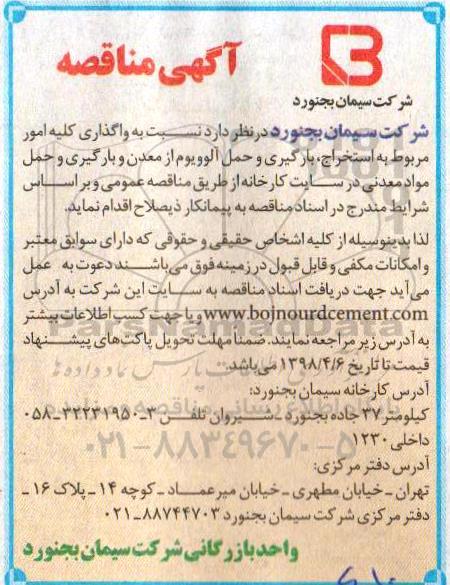 شرکت سیمان بجنورد
آگهی مناقصه
شرکت سیمان بجنورد در نظر دارد نسبت به واگذاری کلیه امور
مربوط به استخراج، بارگیری و حمل آلوویوم از معدن و بارگیری و حمل
مواد معدنی در سایت کارخانه از طریق مناقصه عمومی و بر اساس
شرایط مندرج در اسناد مناقصه به پیمانکار ذیصلاح اقدام نماید.
لذا بدینوسیله از کلیه اشخاص حقیقی و حقوقی که دارای سوابق معتبر
و امکانات مکفی و قابل قبول در زمینه فوق می‌باشند دعوت به عمل
می‌آید جهت دریافت اسناد مناقصه به سایت این شرکت به آدرس
www.bojnourdcement.com و یا جهت کسب اطلاعات بیشتر
به آدرس زیر مراجعه نمایند. ضمنا مهلت تحویل پاکت‌های پیشنهاد
قیمت تا تاریخ ۱۳۹۸/۴/۶ می‌باشد.
آدرس کارخانه سیمان بجنورد:
کیلومتر ۳۷ جاده بجنورد ـ شیروان تلفن ۳ـ۳۲۲۳۱۹۵۰ـ۰۵۸
داخلی ۱۲۳۰
آدرس دفتر مرکزی:
تهران ـ خیابان مطهری ـ خیابان میرعماد ـ کوچه ۱۴ ـ پلاک ۱۶ ـ
دفتر مرکزی شرکت سیمان بجنورد ۸۸۷۴۴۷۰۳ـ۰۲۱
واحد بازرگانی شرکت سیمان بجنورد
ParsNamadData
۰۲۱-۸۸۳۴۹۶۷۰-۵